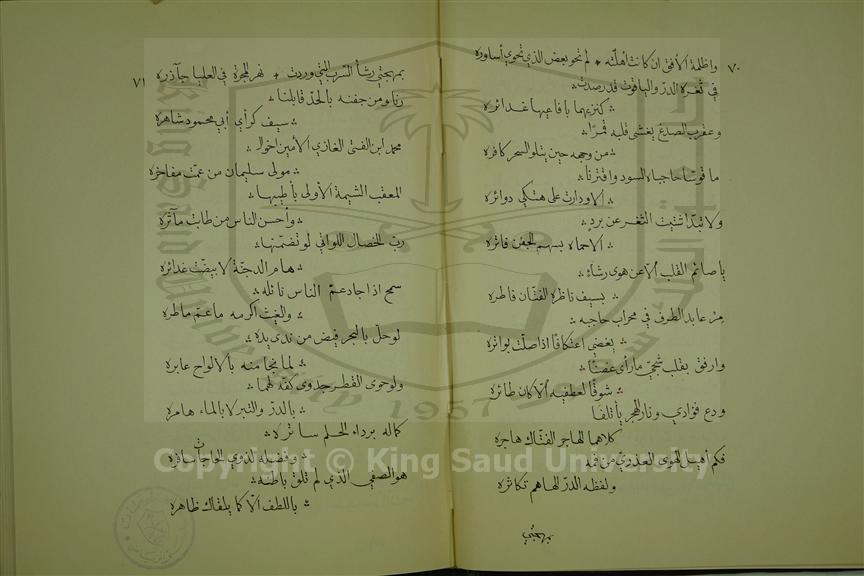 ٧٠
واظلمة الأفق ان كانت أهلّته * لم تحو بعض الذي تحوي أساوره
في ثغره الدرّ والياقوت قد رصدت
كنزيهما بافاعيها غدائره
وعقرب الصدغ يغشى قلبه قمرًا
من وجهه حين يتلو السحر كافره
ما قوّسا حاجباه السود واقترنا
الا ودارت على هتكي دوائره
ولا تبدّا شتيت الثغر عن برد
الا حماه بسهم الجفن فاتره
يا صائم القلب الّا عن هوى رشاء
بسيف ناظره الفتّان فاطره
مر عابد الطرف في محراب حاجبه
يغضي اعتكافًا اذا صلّت بواتره
وارفق بقلب شجيّ ما رأى غصنًا
شوقًا لعطفيه الّا كان طائره
ودع فؤادي ونار الهجر يأتلفا
كلاهما الهاجر الفتّاك هاجره
فكم أهيل الهوى العذريّ من فمه
ولفظه الدرّ لهاهم تكاثره
بمهجتي
٧١
بمهجتي رشأ السرب التي وردت * نهر المجرة في العليا جآذره
رنا ومن جفنه بالحدّ قابلنا
سيف كرأي أبي محمود شاهره
محمد ابن الفتى الغازي الأمين اخو الـ
مولى سليمان من عمّت مفاخره
المعقب الشيمة الأولى بأطيبها
وأحسن الناس من طابت مآثره
ربّ الخصال اللواتي لو تضمّنها
هام الدجنّة لابيضّت غدائره
سمح اذا جاد عمّ الناس نائله
والغيث اكرمه ما عمّ ماطره
لو حلّ بالبحر فيض من ندى يده
لما نجا منه بالالواح عابره
ولو حوى القطر جدوى كفّه لهما
بالدرّ والتبر لا بالماء هامره
كماله برداء الحلم ساتره
وفضله لذوي الحاجات سافره
هو الصفي الذي لم تلق باطنه
باللطف الّا كما يلقاك ظاهره
Copyright © King Saud University
1957